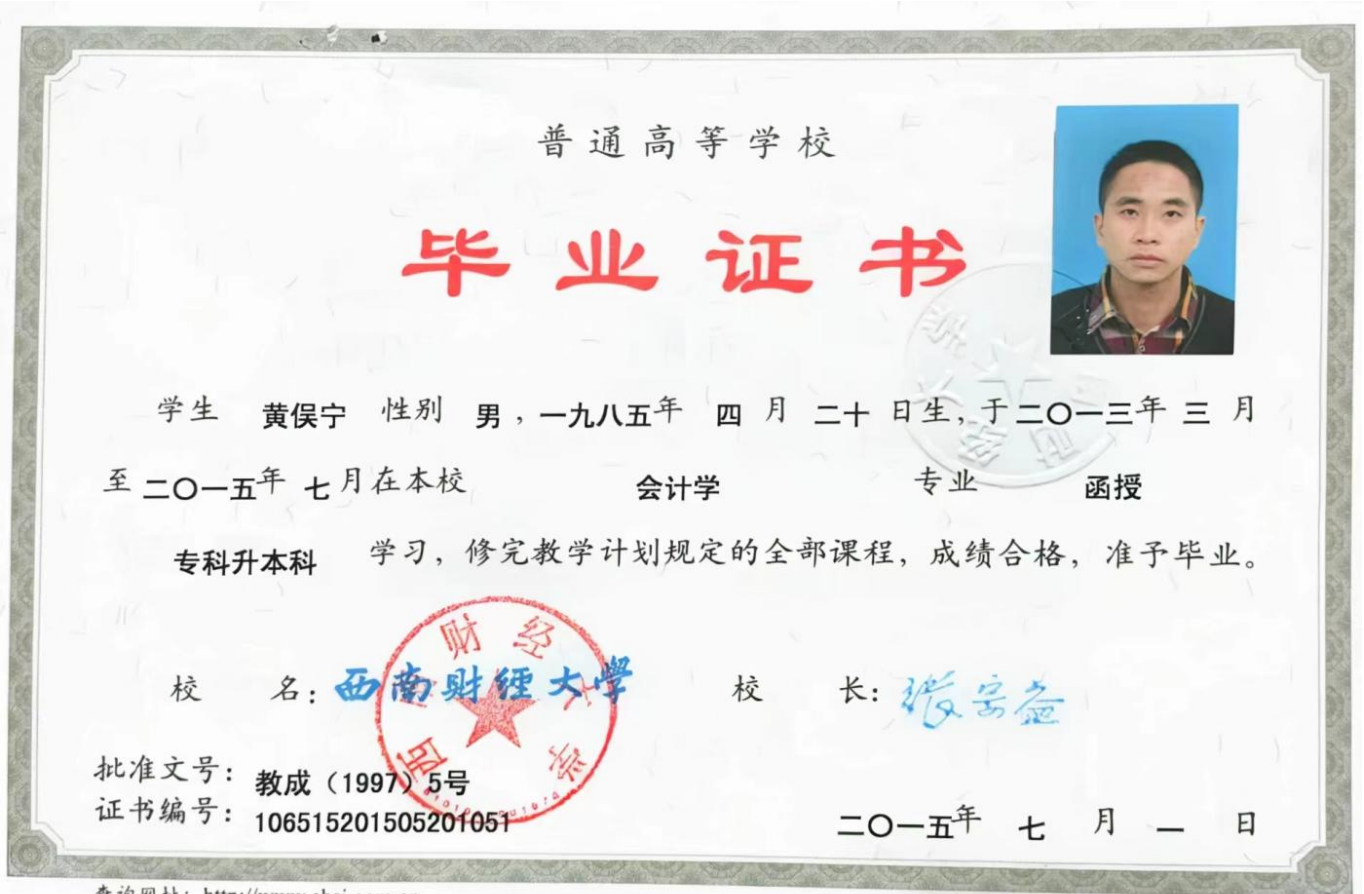 普通高等学校
毕业证书
学生 黄俣宁 性别 男，一九八五年 四 月 二十 日生，于二〇一三年 三 月
至 二〇一五年 七月在本校 会计学 专业 函授
专科升本科 学习，修完教学计划规定的全部课程，成绩合格，准予毕业。
校 名：西南财经大學 校 长：张宗益
西南财经大学
批准文号：教成（1997）5号
证书编号：106515201505201051
二〇一五年 七 月 一 日